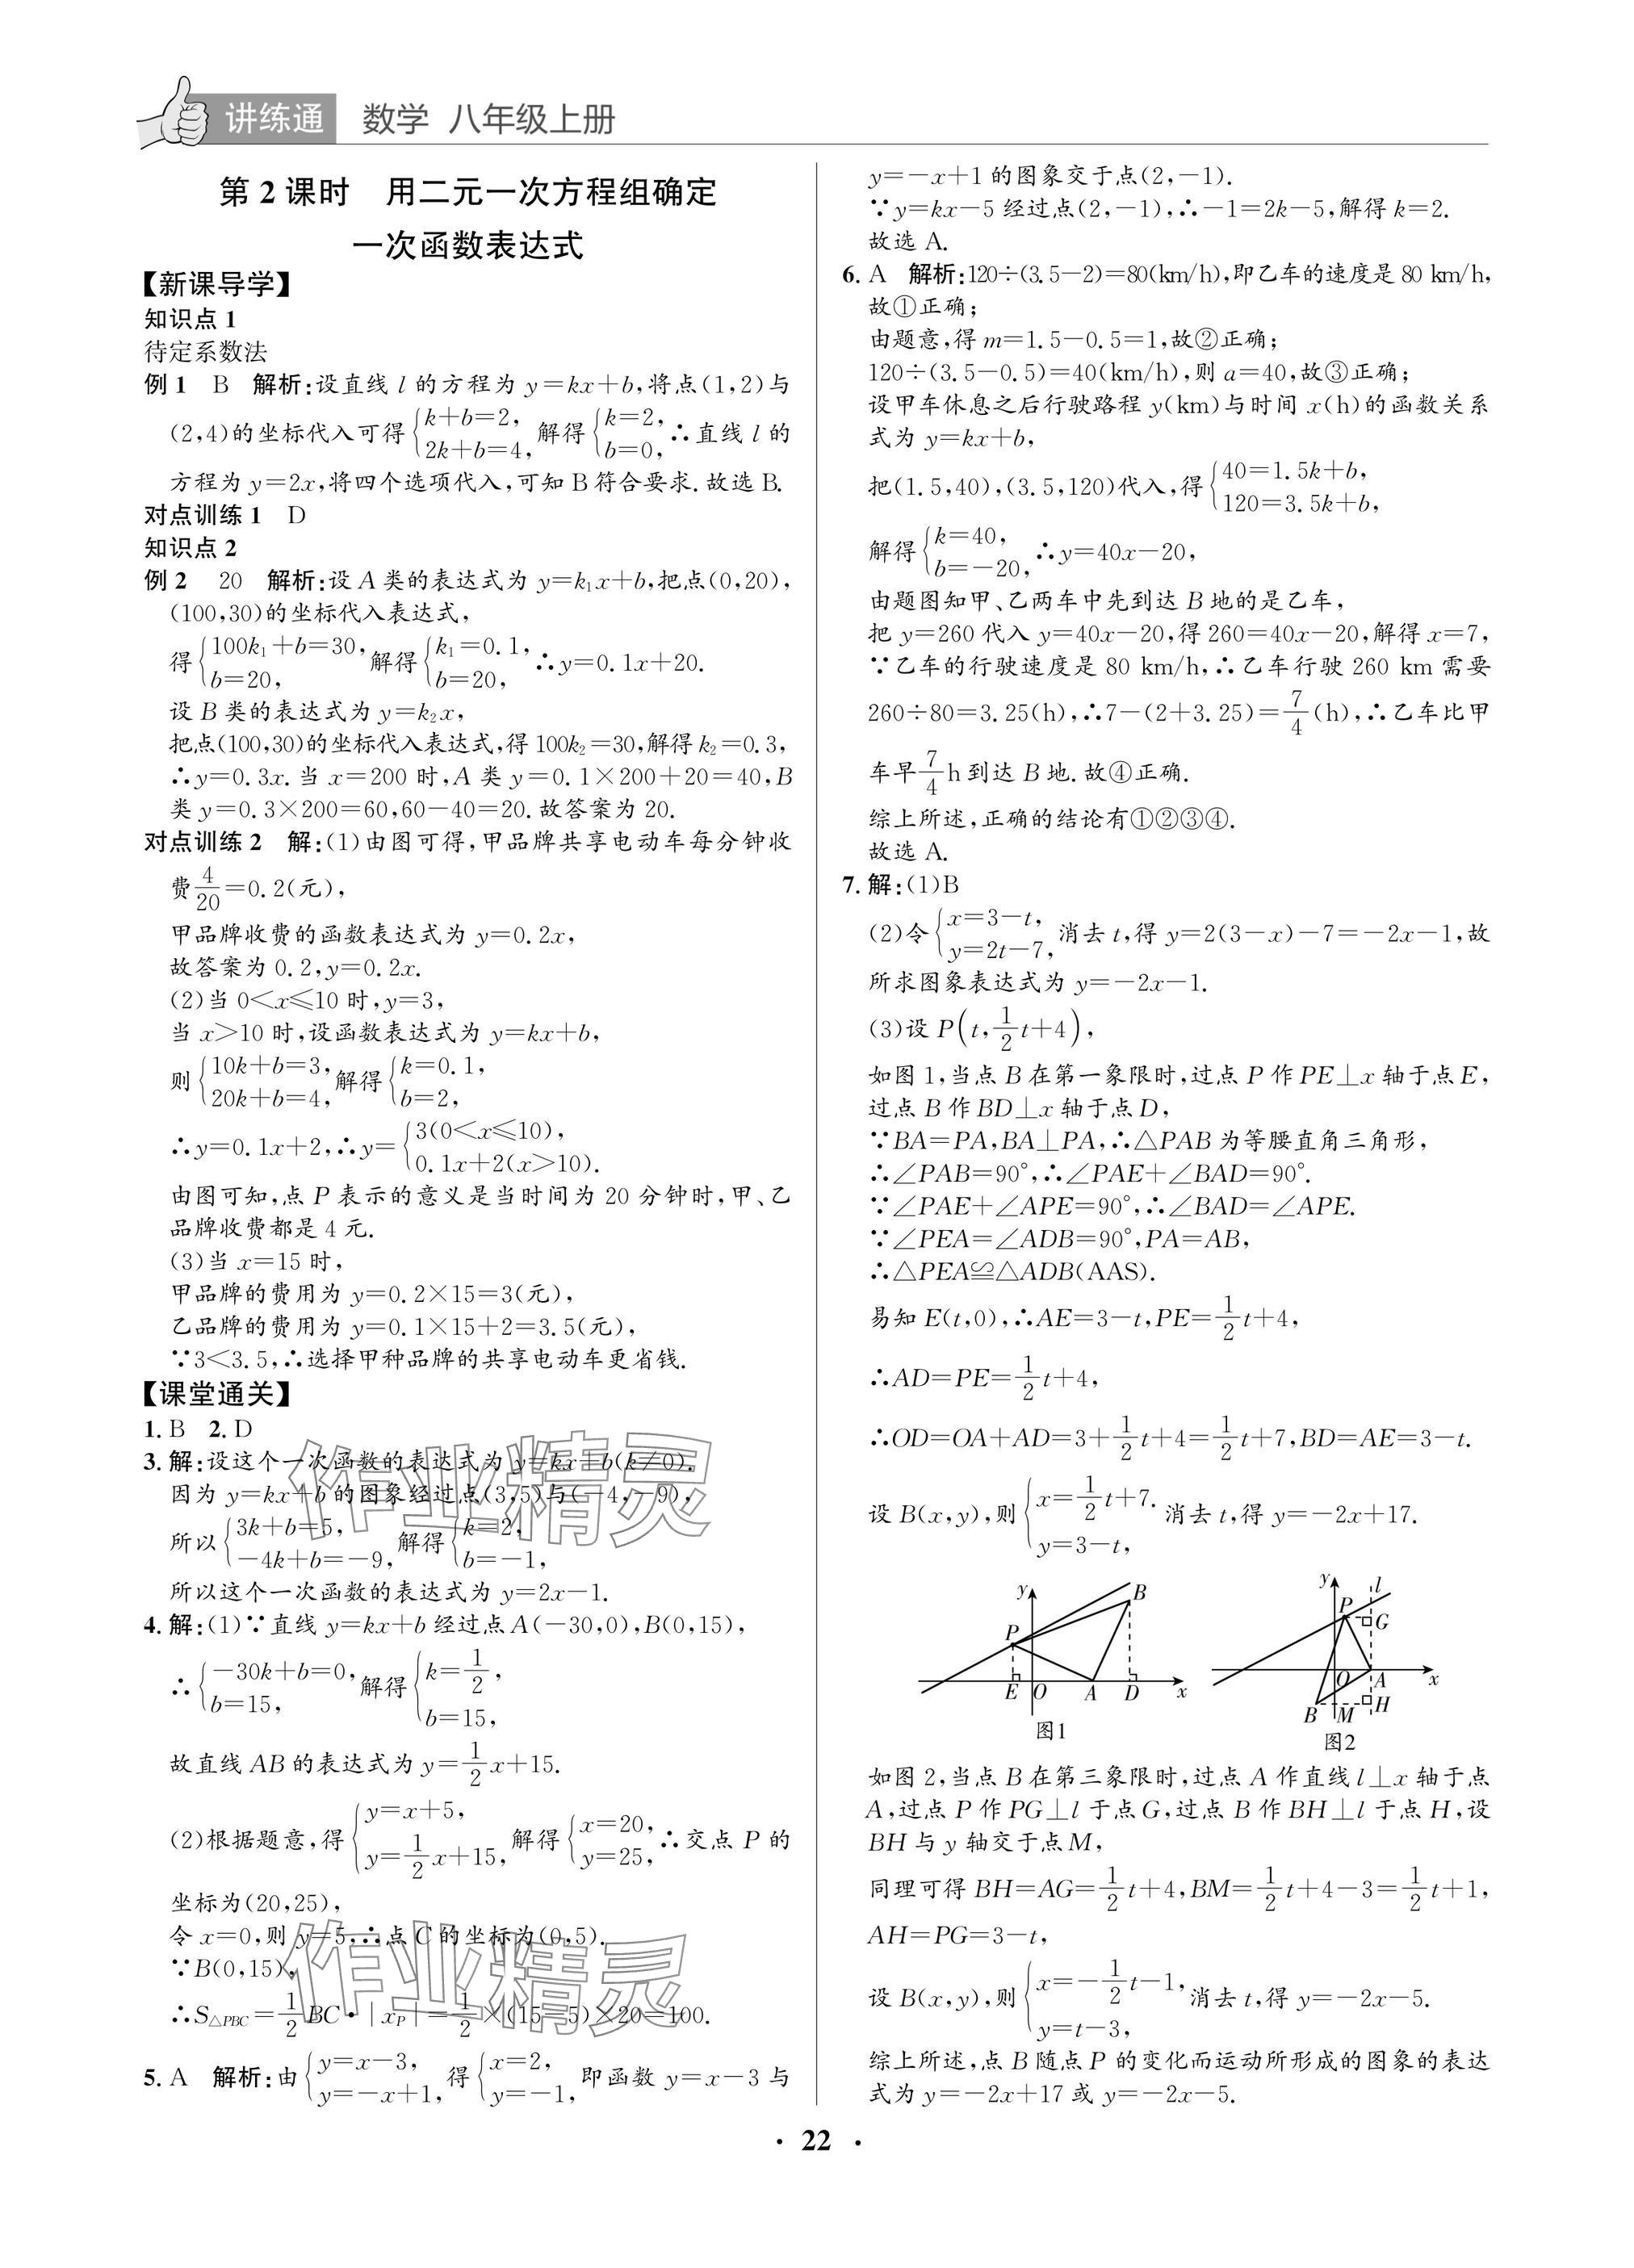 讲练通 数学 八年级上册
第2课时 用二元一次方程组确定
一次函数表达式
【新课导学】
知识点1
待定系数法
例1 B 解析:设直线 l 的方程为 y=kx+b,将点(1,2)与
(2,4)的坐标代入可得{k+b=2, 2k+b=4, 解得{k=2, b=0, ∴直线 l 的
方程为 y=2x,将四个选项代入,可知B符合要求.故选B.
对点训练1 D
知识点2
例2 20 解析:设 A 类的表达式为 y=k₁x+b,把点(0,20),
(100,30)的坐标代入表达式,
得{100k₁+b=30, b=20, 解得{k₁=0.1, b=20, ∴y=0.1x+20.
设 B 类的表达式为 y=k₂x,
把点(100,30)的坐标代入表达式,得100k₂=30,解得k₂=0.3,
∴y=0.3x.当 x=200 时,A 类 y=0.1×200+20=40,B
类 y=0.3×200=60,60-40=20.故答案为 20.
对点训练2 解:(1)由图可得,甲品牌共享电动车每分钟收
费4/20=0.2(元),
甲品牌收费的函数表达式为 y=0.2x,
故答案为 0.2,y=0.2x.
(2)当 0<x≤10 时,y=3,
当 x>10 时,设函数表达式为 y=kx+b,
则{10k+b=3, 20k+b=4, 解得{k=0.1, b=2,
∴y=0.1x+2,∴y={3(0<x≤10), 0.1x+2(x>10).
由图可知,点 P 表示的意义是当时间为 20 分钟时,甲、乙
品牌收费都是 4 元.
(3)当 x=15 时,
甲品牌的费用为 y=0.2×15=3(元),
乙品牌的费用为 y=0.1×15+2=3.5(元),
∵3<3.5,∴选择甲种品牌的共享电动车更省钱.
【课堂通关】
1. B 2. D
3. 解:设这个一次函数的表达式为 y=kx+b(k≠0).
因为 y=kx+b 的图象经过点(3,5)与(-4,-9),
所以{3k+b=5, -4k+b=-9, 解得{k=2, b=-1,
所以这个一次函数的表达式为 y=2x-1.
4. 解:(1)∵直线 y=kx+b 经过点A(-30,0),B(0,15),
∴{-30k+b=0, b=15, 解得{k=1/2, b=15,
故直线 AB 的表达式为 y=1/2x+15.
(2)根据题意,得{y=x+5, y=1/2x+15, 解得{x=20, y=25, ∴交点 P 的
坐标为(20,25),
令 x=0,则 y=5,∴点 C 的坐标为(0,5).
∵B(0,15),
∴S△PBC=1/2BC·|xP|=1/2×(15-5)×20=100.
5. A 解析:由{y=x-3, y=-x+1, 得{x=2, y=-1, 即函数 y=x-3 与
y=-x+1 的图象交于点(2,-1).
∵y=kx-5 经过点(2,-1),∴-1=2k-5,解得 k=2.
故选 A.
6. A 解析:120÷(3.5-2)=80(km/h),即乙车的速度是 80 km/h,
故①正确;
由题意,得 m=1.5-0.5=1,故②正确;
120÷(3.5-0.5)=40(km/h),则 a=40,故③正确;
设甲车休息之后行驶路程 y(km)与时间 x(h)的函数关系
式为 y=kx+b,
把(1.5,40),(3.5,120)代入,得{40=1.5k+b, 120=3.5k+b,
解得{k=40, b=-20, ∴y=40x-20,
由题图知甲、乙两车中先到达 B 地的是乙车,
把 y=260 代入 y=40x-20,得 260=40x-20,解得 x=7,
∵乙车的行驶速度是 80 km/h,∴乙车行驶 260 km 需要
260÷80=3.25(h),∴7-(2+3.25)=7/4(h),∴乙车比甲
车早7/4h到达 B 地.故④正确.
综上所述,正确的结论有①②③④.
故选 A.
7. 解:(1)B
(2)令{x=3-t, y=2t-7, 消去 t,得 y=2(3-x)-7=-2x-1,故
所求图象表达式为 y=-2x-1.
(3)设 P(t,1/2t+4),
如图 1,当点 B 在第一象限时,过点 P 作 PE⊥x 轴于点 E,
过点 B 作 BD⊥x 轴于点 D,
∵BA=PA,BA⊥PA,∴△PAB 为等腰直角三角形,
∴∠PAB=90°,∴∠PAE+∠BAD=90°.
∵∠PAE+∠APE=90°,∴∠BAD=∠APE.
∵∠PEA=∠ADB=90°,PA=AB,
∴△PEA≌△ADB(AAS).
易知 E(t,0),∴AE=3-t,PE=1/2t+4,
∴AD=PE=1/2t+4,
∴OD=OA+AD=3+1/2t+4=1/2t+7,BD=AE=3-t.
设 B(x,y),则{x=1/2t+7. y=3-t, 消去 t,得 y=-2x+17.
y B P E O A D x
图1
y l P G O A x B M H
图2
如图 2,当点 B 在第三象限时,过点 A 作直线 l⊥x 轴于点
A,过点 P 作 PG⊥l 于点 G,过点 B 作 BH⊥l 于点 H,设
BH 与 y 轴交于点 M,
同理可得 BH=AG=1/2t+4,BM=1/2t+4-3=1/2t+1,
AH=PG=3-t,
设 B(x,y),则{x=-1/2t-1, y=t-3, 消去 t,得 y=-2x-5.
综上所述,点 B 随点 P 的变化而运动所形成的图象的表达
式为 y=-2x+17 或 y=-2x-5.
作业精灵
作业精灵
· 22 ·